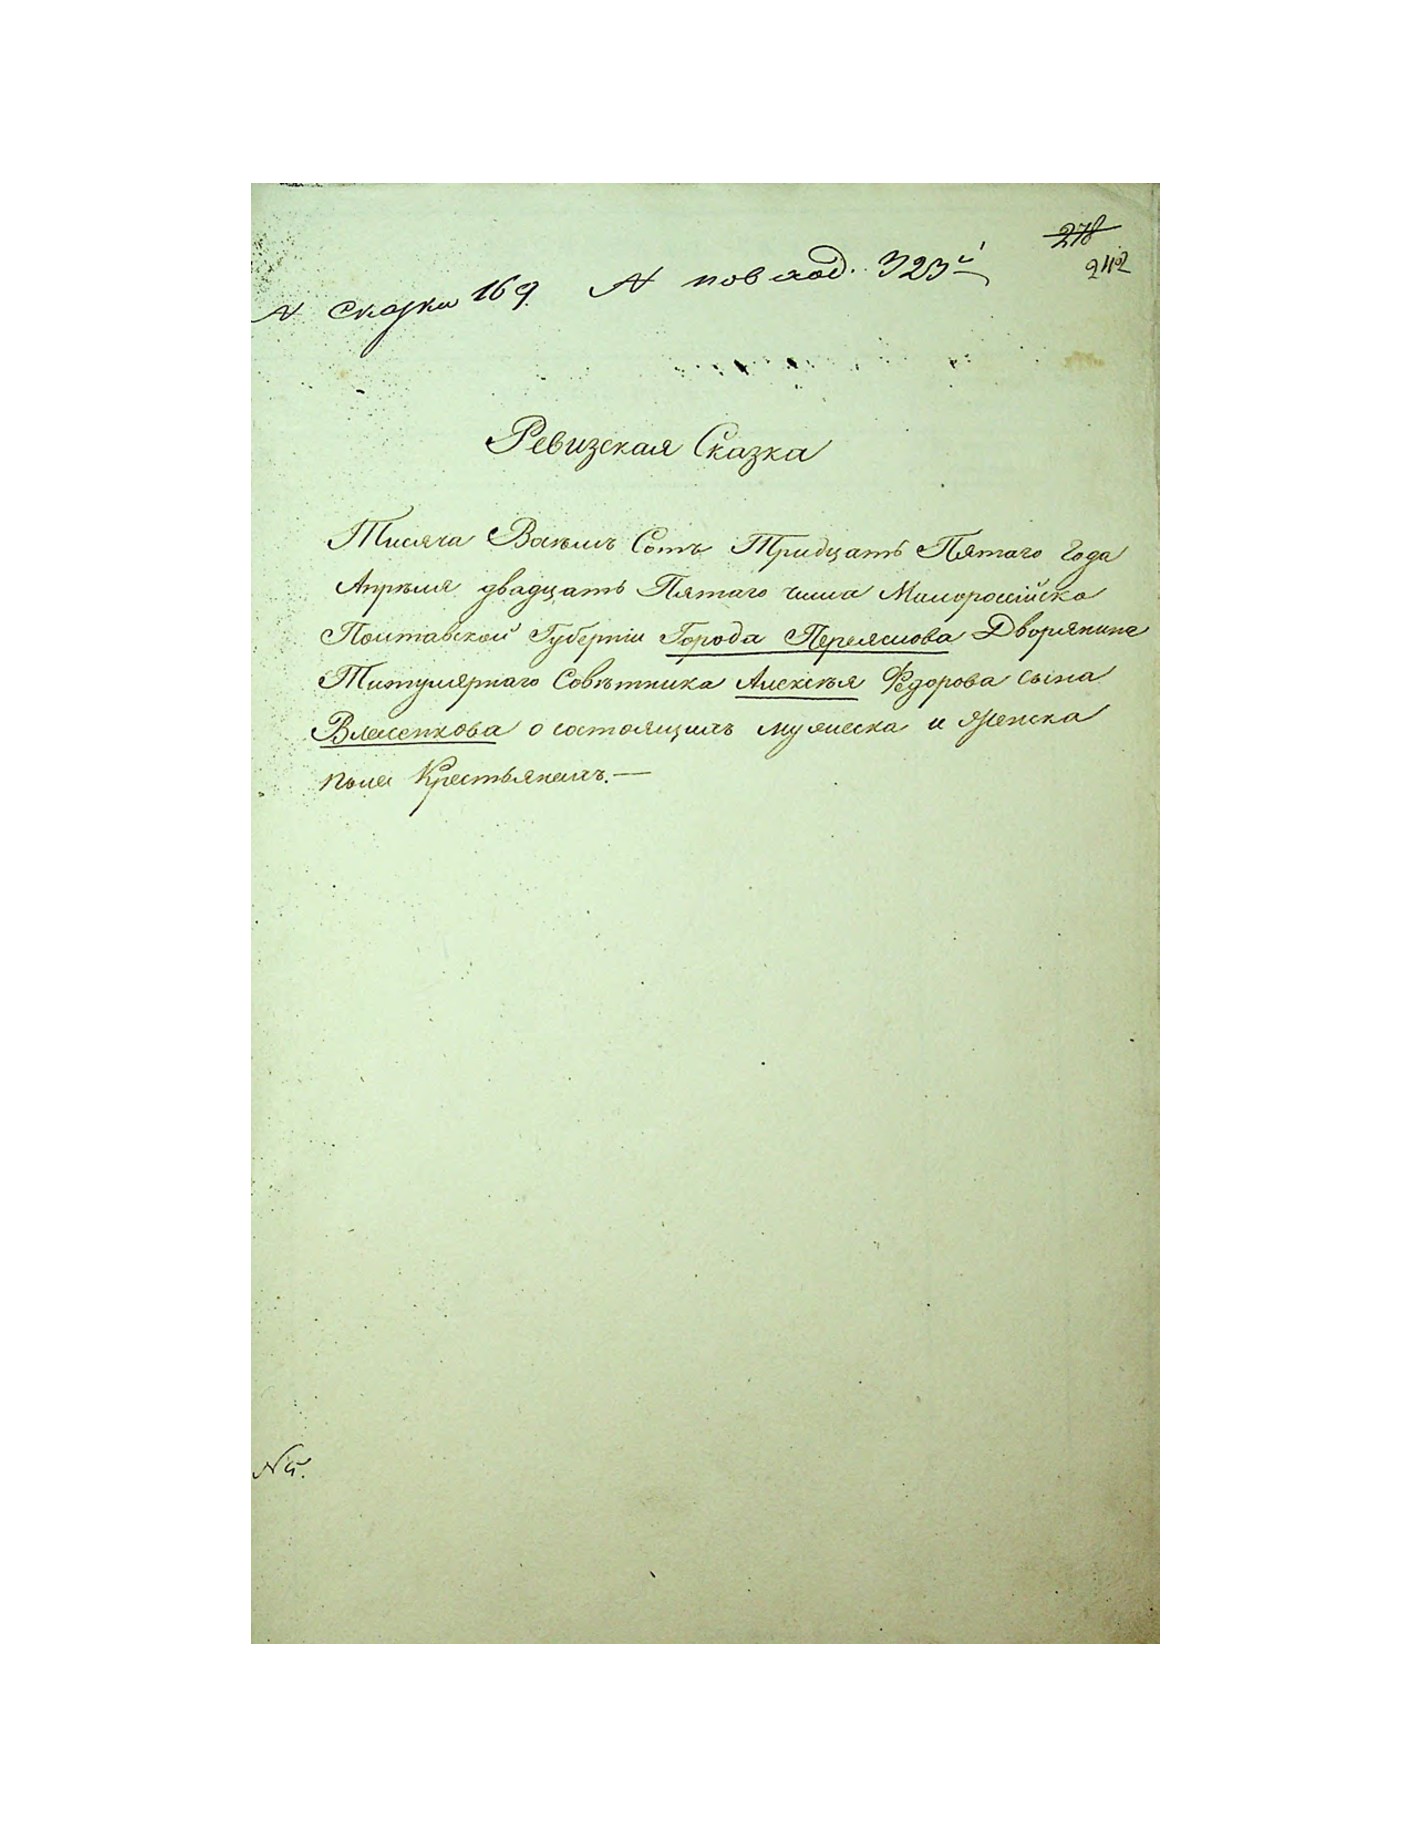 278
242
N сказки 169. N повход. 323й
Ревизская Сказка
Тисяча Восѣмъ Сотъ Тридцать Пятаго Года
Апрѣля двадцать Пятаго числа Малороссійско
Полтавской Губерніи Города Переяслова Дворянина
Титулярнаго Совѣтника Алексѣя Федорова сына
Власенкова о состоящихъ мужеска и женска
пола Крестьянехъ.—